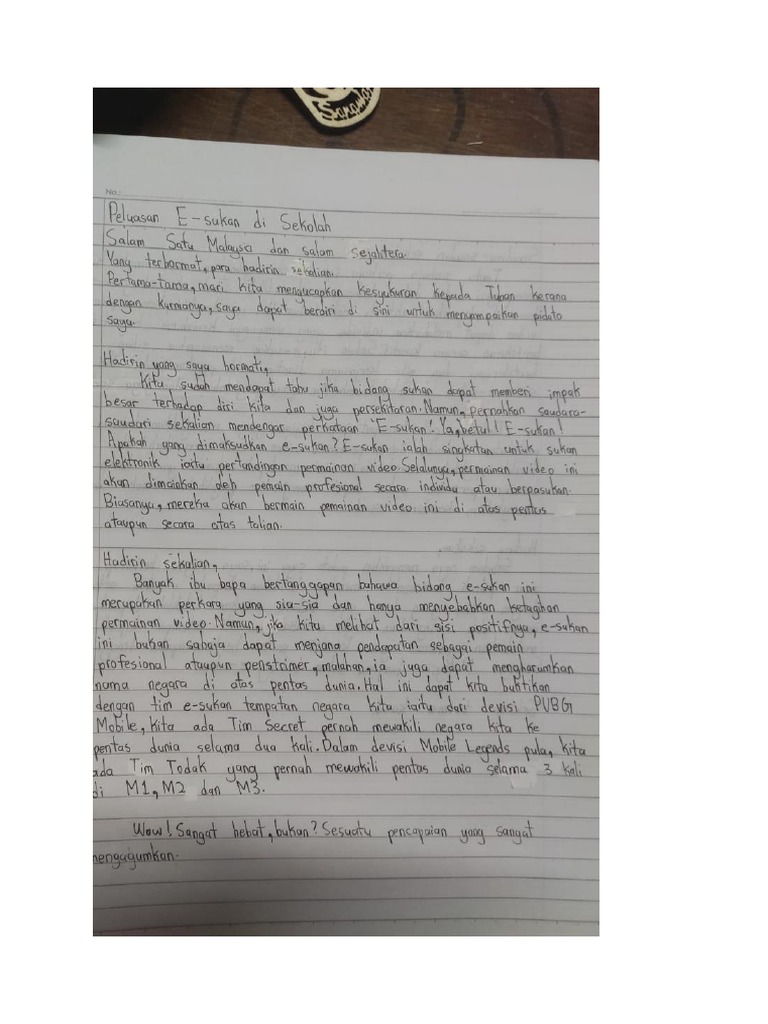 Sarawak
No.:
Peluasan E-sukan di Sekolah
Salam Satu Malaysia dan salam sejahtera.
Yang terhormat, para hadirin sekalian.
Pertama-tama, mari kita mengucapkan kesyukuran kepada Tuhan kerana
dengan kurnianya, saya dapat berdiri di sini untuk menyampaikan pidato
saya.
Hadirin yang saya hormati,
Kita sudah mendapat tahu jika bidang sukan dapat memberi impak
besar terhadap diri kita dan juga persekitaran. Namun, pernahkan saudara-
saudari sekalian mendengar perkataan 'E-sukan! Ya, betul! E-sukan!
Apakah yang dimaksudkan e-sukan? E-sukan ialah singkatan untuk sukan
elektronik iaitu pertandingan permainan video. Selalunya, permainan video ini
akan dimainkan oleh pemain profesional secara individu atau berpasukan.
Biasanya, mereka akan bermain pemainan video ini di atas pentas
ataupun secara atas talian.
Hadirin sekalian,
Banyak ibu bapa bertanggapan bahawa bidang e-sukan ini
merupakan perkara yang sia-sia dan hanya menyebabkan ketagihan
permainan video. Namun, jika kita melihat dari sisi positifnya, e-sukan
ini bukan sahaja dapat menjana pendapatan sebagai pemain
profesional ataupun penstrimer, malahan, ia juga dapat mengharumkan
nama negara di atas pentas dunia. Hal ini dapat kita buktikan
dengan tim e-sukan tempatan negara kita iaitu dari devisi PUBG
Mobile, kita ada Tim Secret pernah mewakili negara kita ke
pentas dunia selama dua kali. Dalam devisi Mobile Legends pula, kita
ada Tim Todak yang pernah mewakili pentas dunia selama 3 kali
di M1, M2 dan M3.
Wow! Sangat hebat, bukan? Sesuatu pencapaian yang sangat
mengagumkan.